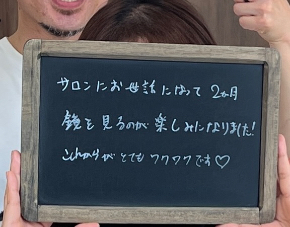 サロンにお世話になって 2ヵ月
鏡を見るのが楽しみになりました!
これからがとてもワクワクです♡